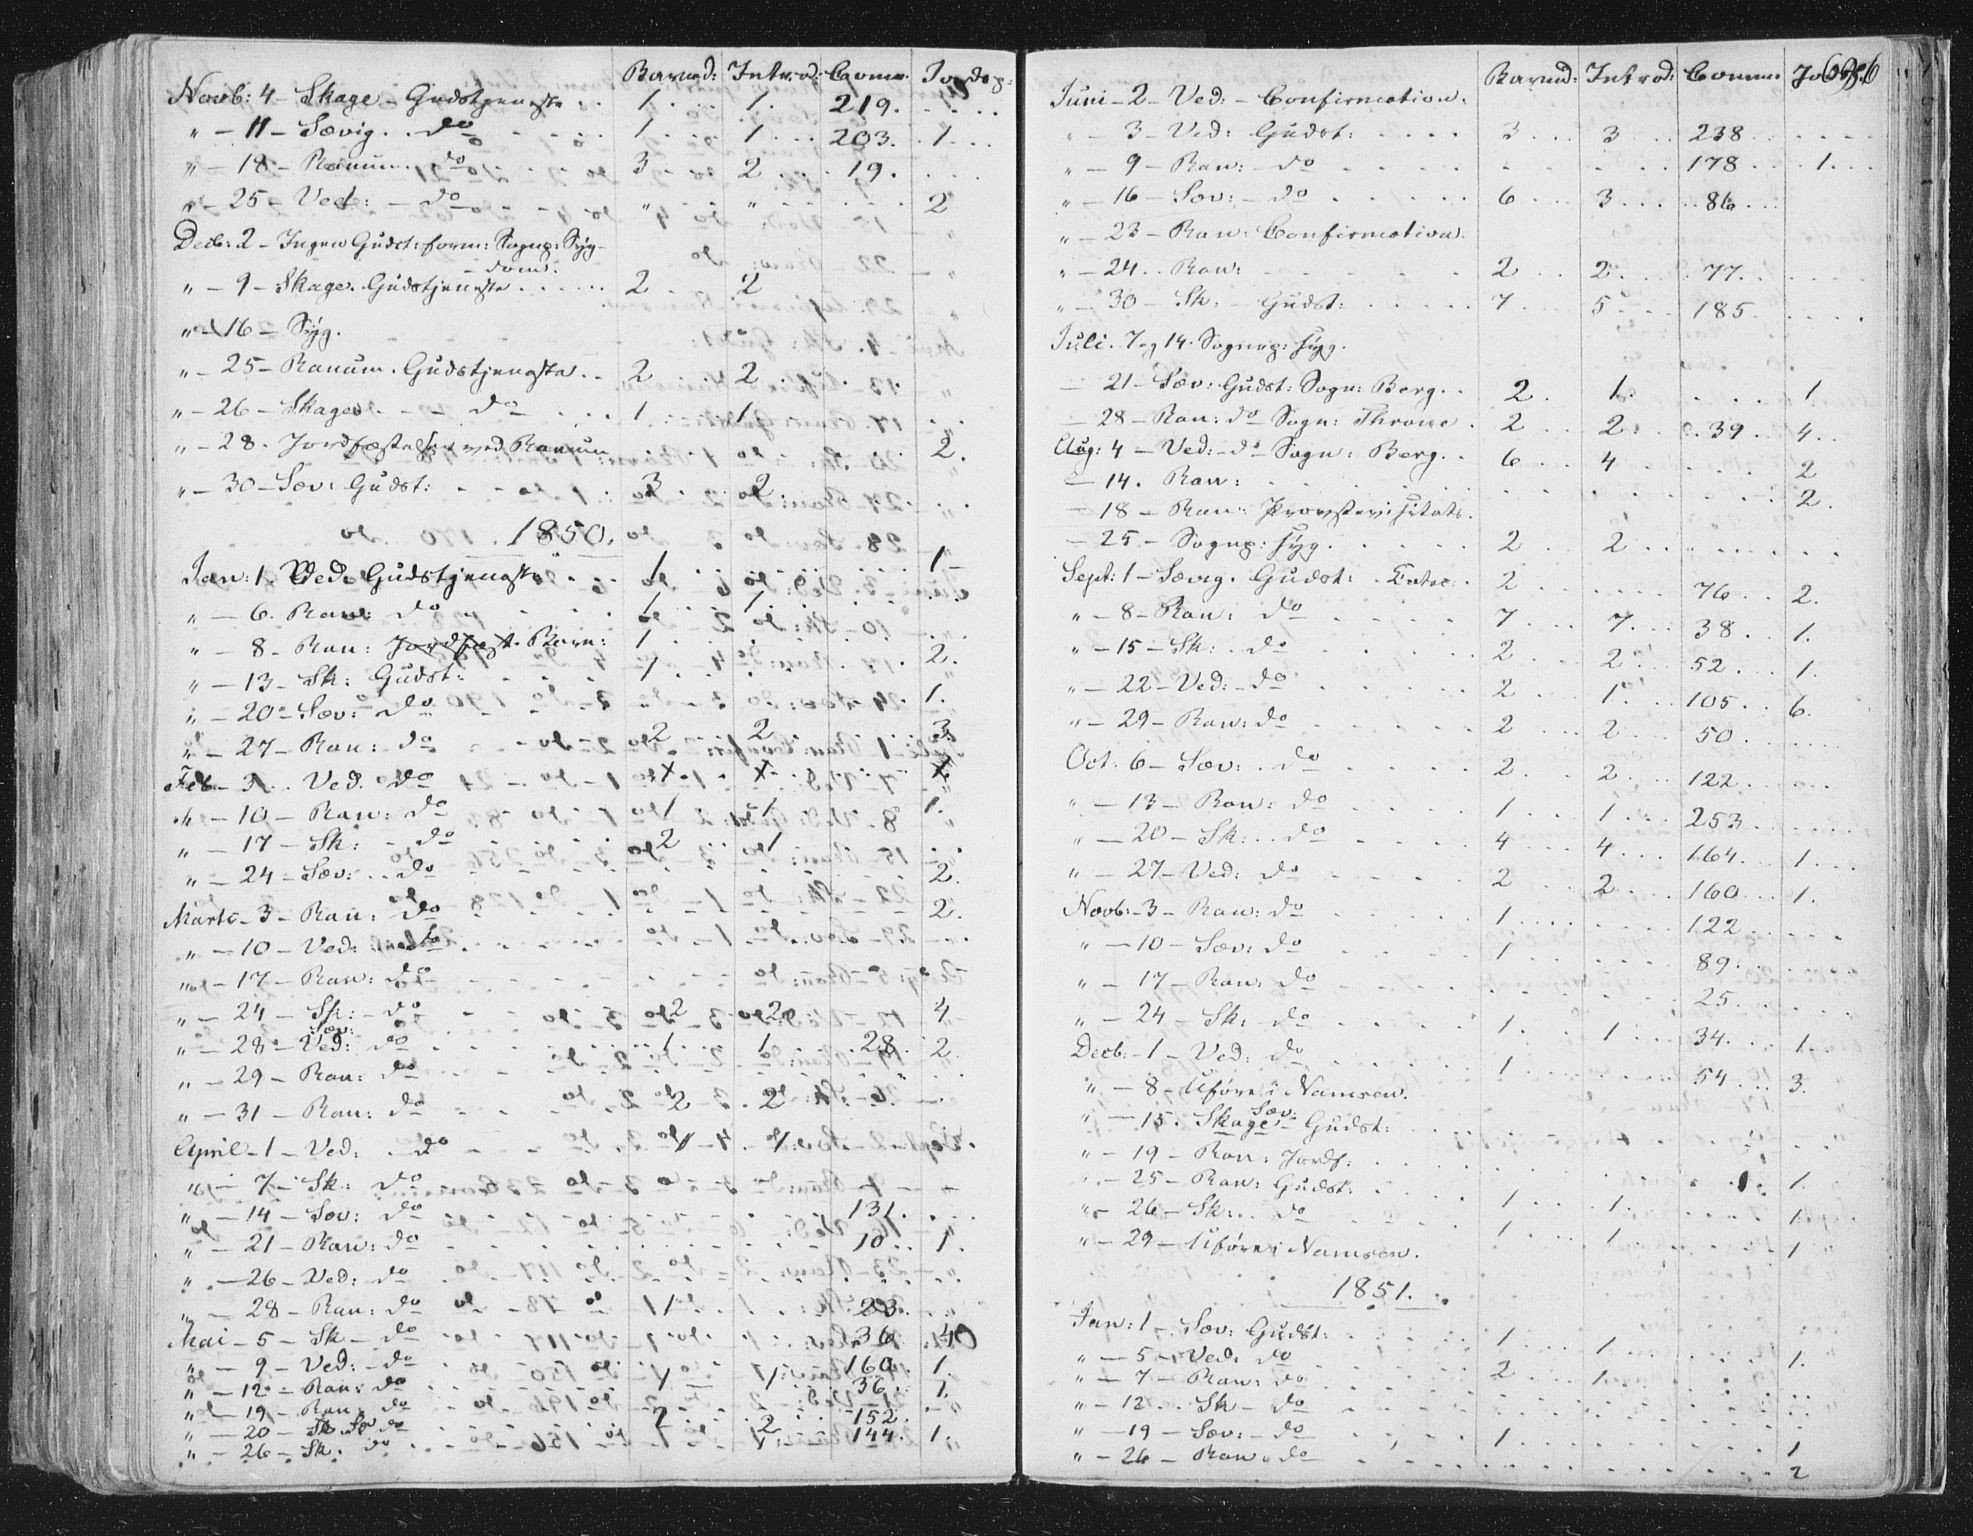 Barnd: Introd: Comm. Jordf:
Novb: 4 – Skage – Gudstjeneste . . 1 . . . 1. 219. . . . .
" – 11 – Sævig. . do . . . . 1 . . . 1 . . . 203. . 1 . . .
" – 18 – Ranum. do . . 3 2 . . . 19. . . .
" – 25 – Ved: – do . . " . . " . . . . . . 2
Decb: 2 – Ingen Gudst: form: Sognep: Syg-
dom.
" – 9 – Skage. Gudstjeneste . . . . . . 2 . . 2
" – 16 – Syg.
" – 25 – Ranum. Gudstjeneste . . 2 . . 2 . . .
" – 26 – Skage. – – do . . . 1 . . 1.
" – 28. Jordfæstelse ved Ranum 2.
" – 30 – Sæv: Gudst: – – . . 3 . . . 2.
1850.
Jan: 1. Ved. Gudstjeneste . . . 1 . . . . . . 1 –
" – 6. Ran: do . . . . 1 . . 1 . . .
" – 8. Ran: Jordfæst. Barn: 1 . . . . 2.
" – 13 – Sk: Gudst: . . . . 1 . . .
" – 20 – Sæv: do . . . . 1.
" – 27 – Ran: do . . 2 . . 2 . . 3.
Feb – 3. . Ved. do . . X . . X . . X
" – 10 – Ran: do . . 1 . . 1 . . 1.
" – 17 – Sk: – do . . 2 . . 1
" – 24 – Sæv: . . do . . . 2.
Marts – 3 – Ran: do . . . . 2.
" – 10 – Ved: do
" – 17 – Ran: do
" – 24 – Sk: – do . . 2 . . 2 . . 4
Sæv:
" – 28 – Ved: do . . . 1 . . 1 . . 28. 2.
" – 29 – Ran: do
" – 31 – Ran: do . . 2 . . 2.
April – 1 – Ved: . do . . 1 . . 1.
" – 7 – Sk: do
" – 14 – Sæv: do . . . 131. . .
" – 21 – Ran: do . . . 10. . 1.
" – 26 – Ved: do
" – 28 – Ran: do . . 1 . . 1 . . 23.
Mai – 5 – Sk – do . . . 36. 4
" – 9 – Ved: – do . . . 160 1.
" – 12 – Ran: do . . 1 . . 1. 36. . 1.
" – 19 – Ran: do
" – 20 – Sk. Sæv do . . 2 . . 2 . . 152.
" – 26 – Sk. do . . . 1. 144. 1.
Barnd: Introd: Comm. Jordf.
Juni – 2 – Ved: – Confirmation.
" – 3 – Ved: Gudst: . . . . 3 . . . 3 . . . 238 . . . . . .
" – 9 – Ran: – do . . . . . . . . 178 . . . 1. . .
" – 16 – Sæv: – do . . . . . 6 . . . 3 . . . . 86 . . .
" – 23 – Ran: Confirmation.
" – 24. . Ran: – – – . . . 2 . . . 2. . . . 77. . . .
" – 30 – Sk. – Gudst: . . . . 7 . . . 5 . . . 185. . . . .
Juli. 7 og 14. Sognep: syg.
– 21 – Sæv: Gudst: Sogn: Berg. . 2 . 1. . . . . 1.
– 28 – Ran: do Sogn: Throne . 2 . . . 2. . . . 39 . . 4. .
Aug: 4 – Ved: – do Sogn: Berg. . 6 . . . 4 . . . . . 2
– 14. Ran: . . . . . . . . 2.
– 18 – Ran: Provstevisitats.
– 25 – Sognep: syg. . . . . 2 . . 2 . . . . . .
Sept: 1 – Sævig. Gudst: . . 2 . . . . . 76 . . 2.
" – 8 – Ran: do . . . . . 7 . . . 7. . . 38 . . 1.
" – 15 – Sk: . do . . . . . 2 . . . 2 . . . 52 . . . 1.
" – 22 – Ved: – do . . . . . 2 . . . 1. . . 105 . . 6.
" – 29 – Ran: do . . . . . 2 . . . 2 . . . 50 . . . . .
Oct: 6 – Sæv: . do . . . . 2. . . 2. . . 122 . . . . .
" – 13 – Ran: do . . . . . 1 . . . 1. . . . 253 . . . . .
" – 20 – Sk: . . do . . . . . 4 . . . 4 . . . 164. . . 1. . .
" – 27 – Ved: do . . . . . 2 . . . 2 . . . 160 . . 1.
Novb: – 3 – Ran: do . . . . . 1 . . . . . . 122 . . . .
" – 10 – Sæv: do . . . . . 1 . . . . . 89. . . . .
" – 17 – Ran: do . . . . . . . . . 25. . . . .
" – 24 – Sk: do . . . . . 1. . . 1 . . . 34. . . 1.
Decb: – 1 – Ved: do . . . . . 1 . . . . . . 54 . . . 3.
" – 8 – Uføre i Namsen.
Sæv:
" – 15. Skage – Gudst: . . .
" – 19 – Ran: Jordf: . . . . . . . . 1.
" – 25 – Ran: Gudst: . . . . 1 . . . 1. . . . . 1.
" – 26 – Sk: . . do . . . . . 1 . . . 1. . . . . 1
" – 29 – Uføre i Namsen.
1851.
Jan: 1 – Sæv: Gudst: . . . . 1 . . . 1. . . . . 1.
" – 5 – Ved. do . . . . . 2 . . . 1. . . .
" – 7 – Ran: do
" – 12 – Sk – do
" – 19 – Sæv: – do . . . . 1. . . . . . 1
" – 26 – Ran. do . . . . . . . . 2